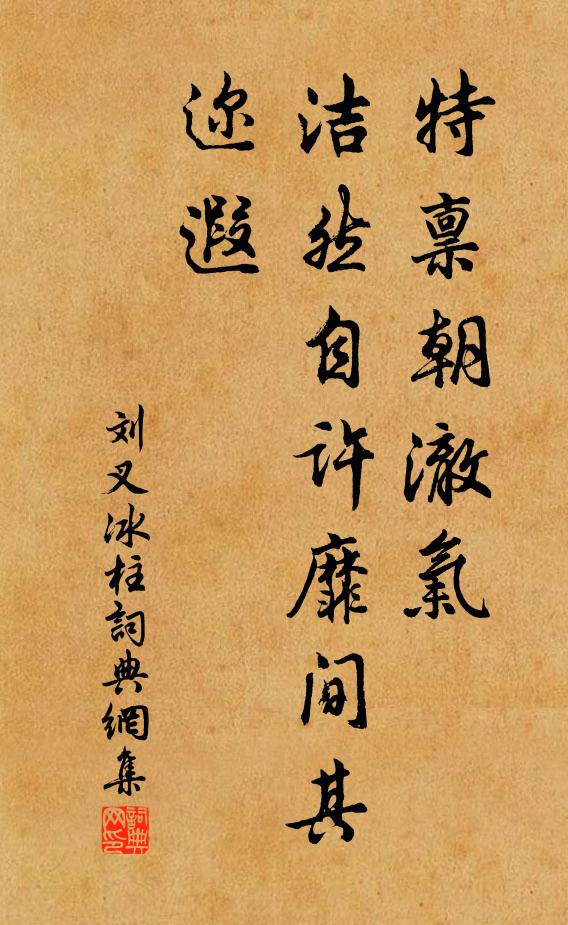 特禀朝澈氣
洁然自许靡间其
迩遐
刘叉冰柱詞典網集
詞典网印